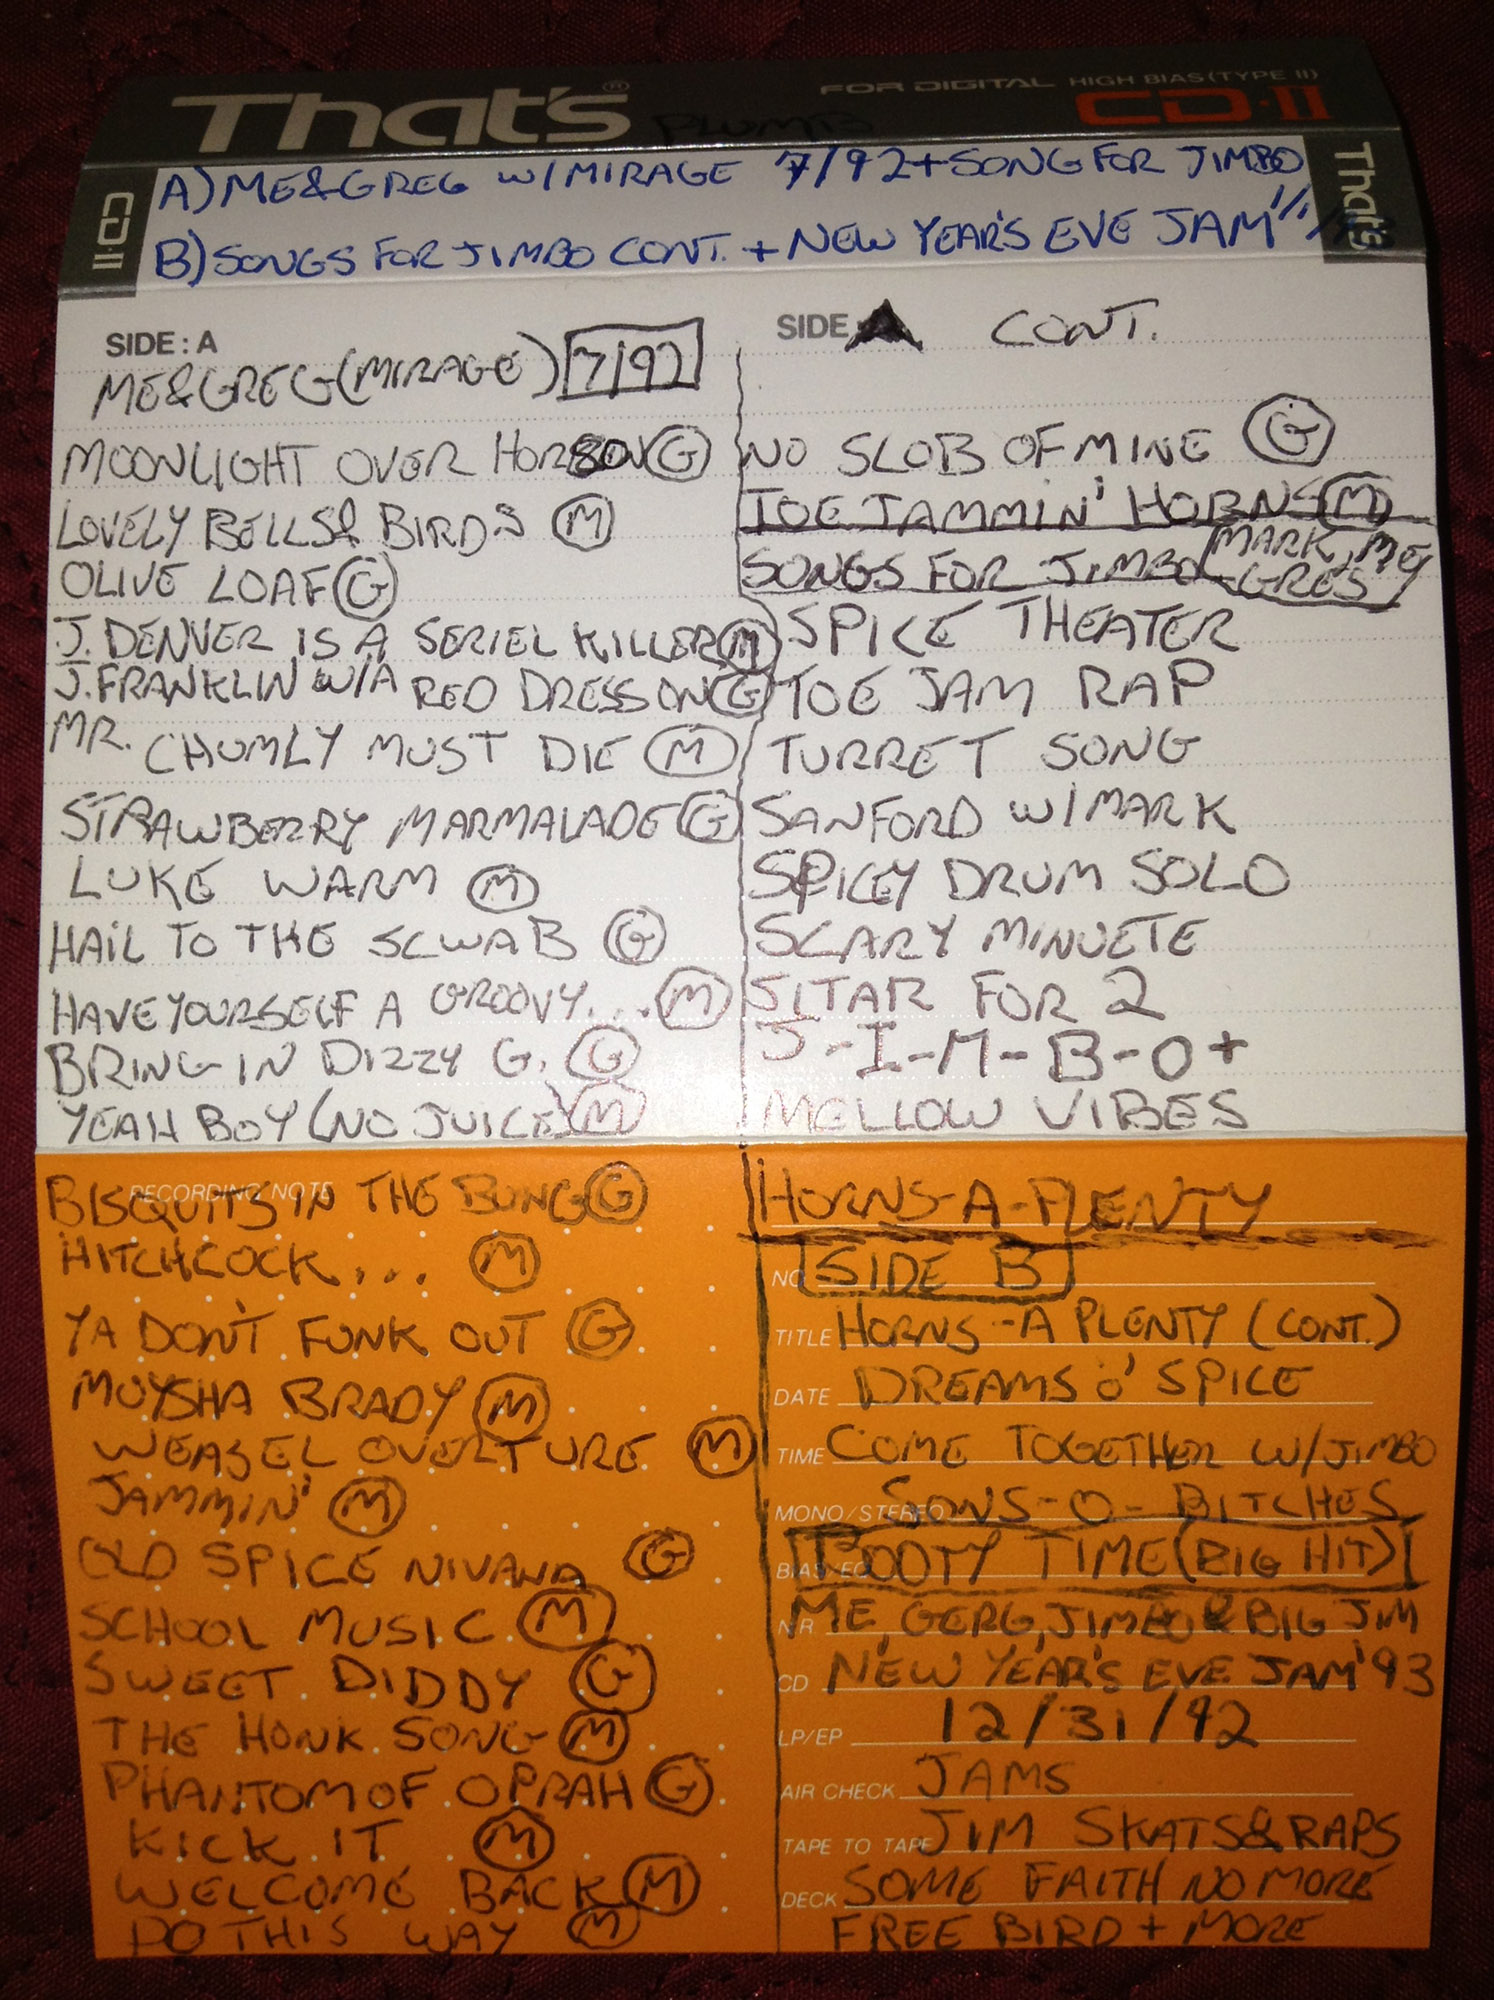 That's®
FOR DIGITAL HIGH BIAS (TYPE II)
CD·II
CD·II
That's
A) ME&GREG W/MIRAGE 7/92+SONG FOR JIMBO
B) SONGS FOR JIMBO CONT. + NEW YEAR'S EVE JAM 1/1/
SIDE : A
ME&GREG (MIRAGE) 7/92
MOONLIGHT OVER G
LOVELY BELLS& BIRDS M
OLIVE LOAF G
J. DENVER IS A SERIEL KILLER M
J. FRANKLIN W/A RED DRESS ON G
MR. CHUMLY MUST DIE M
STRAWBERRY MARMALADE G
LUKE WARM M
HAIL TO THE SCWAB G
HAVE YOURSELF A GROOVY... M
BRING IN DIZZY G. G
YEAH BOY (NO JUICE) M
RECORDING NOTE
BISQUITS IN THE G
HITCHCOCK... M
YA DON'T FUNK OUT G
MOYSHA BRADY M
WEASEL OVERTURE M
JAMMIN' M
OLD SPICE NIVANA G
SCHOOL MUSIC M
SWEET DIDDY G
THE HONK SONG M
PHANTOM OF OPRAH G
KICK IT M
WELCOME BACK M
DO THIS WAY M
SIDE A CONT.
NO SLOB OF MINE G
TOE JAMMIN' HORNS M
SONGS FOR JIMBO MARK, ME,
SPICE THEATER
TOE JAM RAP
TURRET SONG
SANFORD W/MARK
SPICEY DRUM SOLO
SCARY MINUETE
SITAR FOR 2
J-I-M-B-O +
MELLOW VIBES
HORNS-A-PLENTY
NO. SIDE B
TITLE HORNS-A PLENTY (CONT.)
DATE DREAMS O' SPICE
TIME COME TOGETHER W/JIMBO
MONO/STEREO SONS-O-BITCHES
BIAS/EQ BOOTY TIME (BIG HIT)
NR ME, GERG, JIMBO & BIG JIM
CD NEW YEAR'S EVE JAM '93
LP/EP 12/31/92
AIR CHECK JAMS
TAPE TO TAPE JIM SKATS&RAPS
DECK SOME FAITH NO MORE
FREE BIRD + MORE